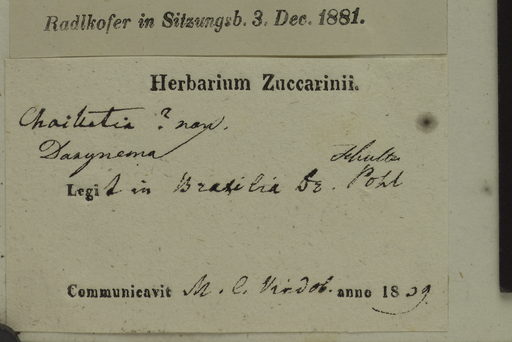 Radlkofer in Sitzungsb. 3. Dec. 1881.
Herbarium Zuccarinii.
Chailletia ? nov.
Dasynema Schultz
Legit in Brasilia Dr. Pohl
Communicavit M. C. Vindob. anno 1839.